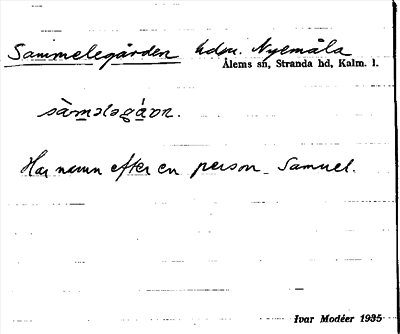 Sammelegården hdm. Nyemåla
Ålems sn, Stranda hd, Kalm. l.
sàmələgá̊ɒn.
Har namn efter en person Samuel.
Ivar Modéer 1935